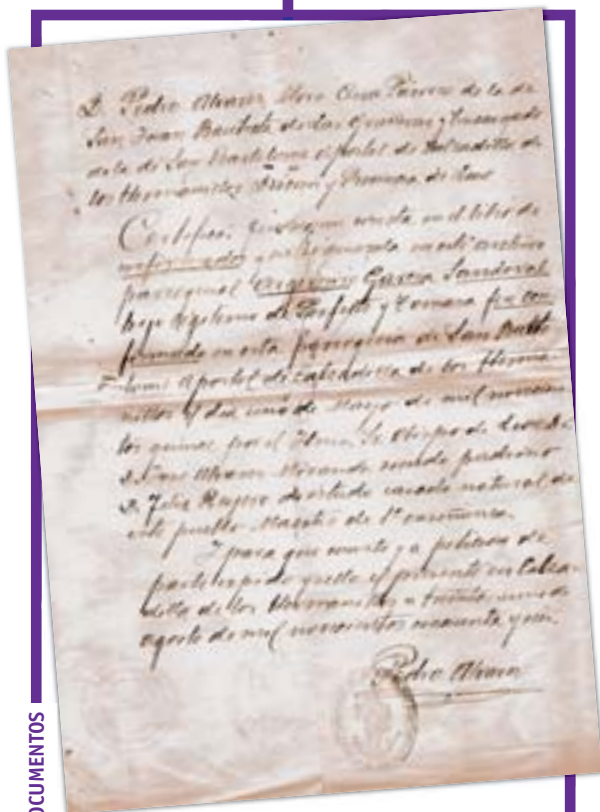 D. Pedro Alvarez Cura Párroco de la de
San Juan Bautista de las y Encargado
de la de San Bartolomé Apostol de Calzadilla de
los Hermanillos y Provincia de León
Certifico: que segun consta en el libro de
confirmados en este archivo
parroquial Garcia Sandoval
hijo legitimo de y Tomasa fue con
firmado en esta parroquia de San Barto
lomé Apostol de Calzadilla de los Herma
nillos el dia uno de Mayo de mil novecien
tos quince por el Iltmo. Sr. Obispo de León D.
José Alvarez Miranda siendo padrino
D. Felix de estado casado natural de
este pueblo Maestro de 1ª enseñanza.
Y para que conste y a peticion de
parte expido y sello el presente en Calza
dilla de los Hermanillos a treinta uno de
Agosto de mil novecientos cincuenta y
Pedro Alvarez
DOCUMENTOS